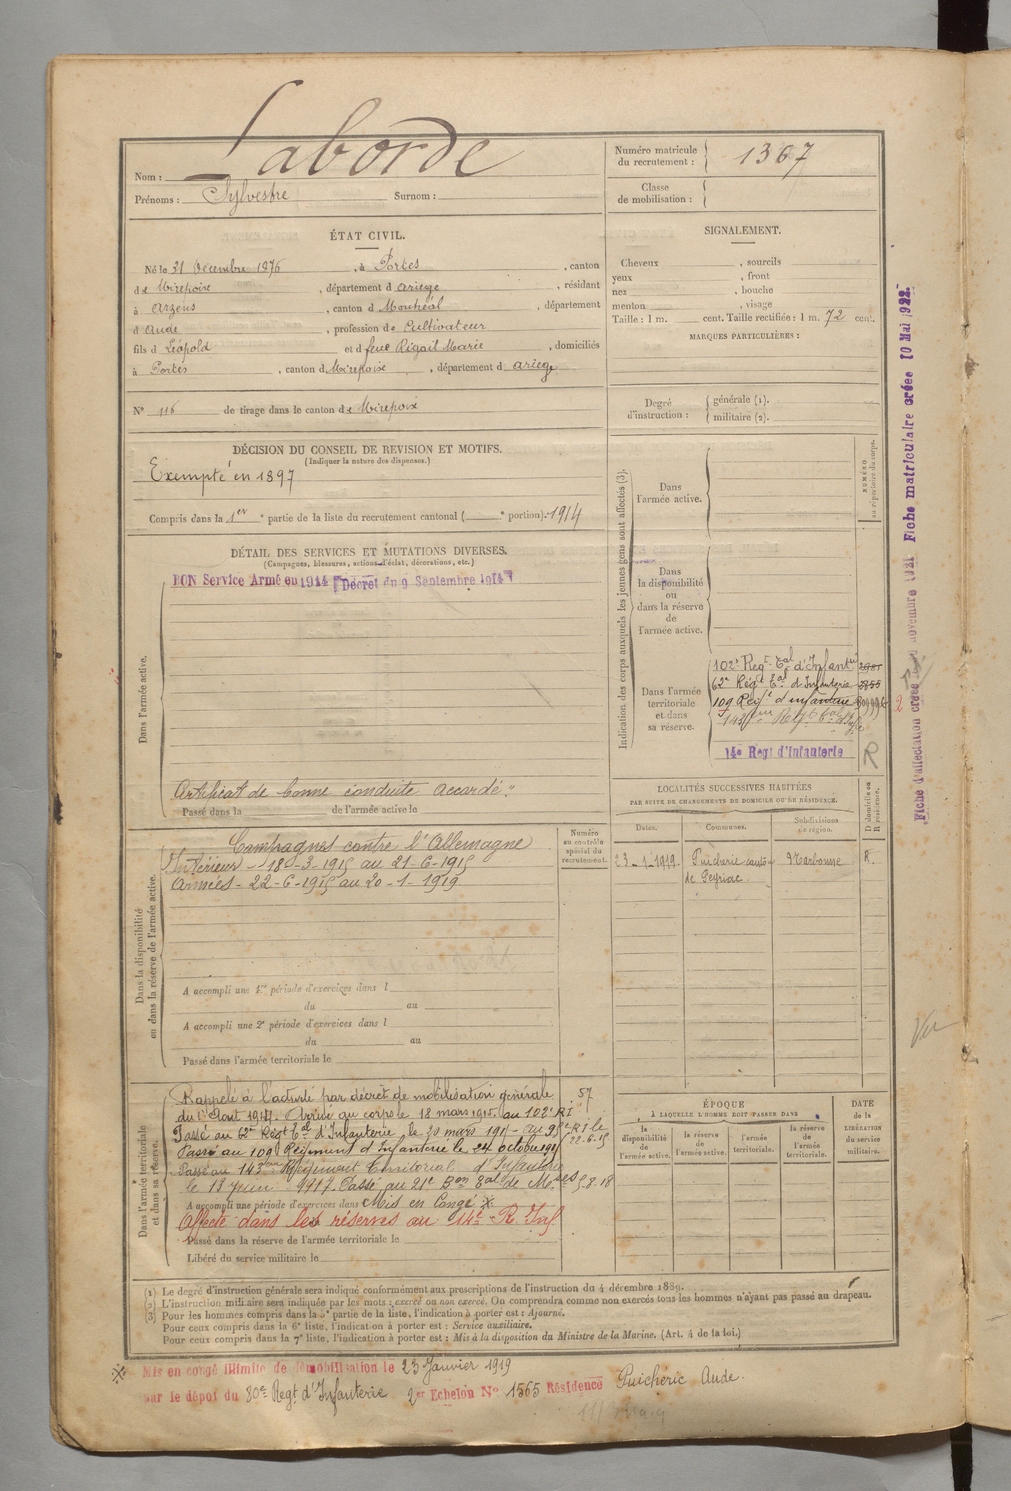 Nom : Laborde
Prénoms : Sylvestre Surnom :
Numéro matricule du recrutement : 1367
Classe de mobilisation :
ÉTAT CIVIL.
Né le 31 Décembre 1876, à Portes, canton
de Mirepoix, département d Ariège, résidant
à Arzens, canton d Montréal, département
d Aude, profession de Cultivateur
fils d Léopold et d feue Rigail Marie, domiciliés
à Portes, canton d Mirepoix, département d Ariège
N° 116 de tirage dans le canton de Mirepoix
SIGNALEMENT.
Cheveux , sourcils
yeux , front
nez , bouche
menton , visage
Taille : 1 m. cent. Taille rectifiée : 1 m. 72 cent.
MARQUES PARTICULIÈRES :
Degré d'instruction : générale (1).
militaire (2).
DÉCISION DU CONSEIL DE REVISION ET MOTIFS.
(Indiquer la nature des dispenses.)
Exempté en 1897
Compris dans la 1er e partie de la liste du recrutement cantonal ( e portion). 1914
DÉTAIL DES SERVICES ET MUTATIONS DIVERSES.
(Campagnes, blessures, actions d'éclat, décorations, etc.)
BON Service Armé en 1914 Décret du 9 Septembre 1914
Dans l'armée active.
Certificat de bonne conduite accordé.
Passé dans la de l'armée active le
Indication des corps auxquels les jeunes gens sont affectés (3).
NUMÉRO au répertoire du corps.
Dans l'armée active.
Dans la disponibilité ou dans la réserve de l'armée active.
Dans l'armée territoriale et dans sa réserve.
102e Régt Tal d'Infantie
62e Régt Tal d'Infanterie
109 Régt d'infanterie
143ème Régt Tal d'Infie
14e Régt d'Infanterie
R
LOCALITÉS SUCCESSIVES HABITÉES
PAR SUITE DE CHANGEMENTS DE DOMICILE OU DE RÉSIDENCE.
D domicile ou R résidence.
Dates. Communes. Subdivisions de région.
23-1-1919. Puichéric canton Narbonne R.
de Peyriac.
Dans la disponibilité ou dans la réserve de l'armée active.
Numéro au contrôle spécial du recrutement.
Campagnes contre l'Allemagne
Intérieur - 18-3-1915 au 21-6-1915
Armées - 22-6-1915 au 20-1-1919
A accompli une 1re période d'exercices dans l
du au
A accompli une 2e période d'exercices dans l
du au
Passé dans l'armée territoriale le
Dans l'armée territoriale et dans sa réserve.
Rappelé à l'activité par décret de mobilisation générale 57
du 1er Août 1914. Arrivé au corps le 18 mars 1915. au 102e RI
Passé au 62e Régt Tal d'Infanterie le 30 mars 191 - au 95e RI le
22.6.15
Passé au 109 Régiment d'Infanterie le 24 octobre 191
Passé au 143ème Régiment Territorial d'Infanterie
le 13 juin 1917. Passé au 21e Bon Tal de Mses 5.8.18
A accompli une période d'exercices dans Mis en Congé x.
Affecté dans les réserves au 14e R. Inf
Passé dans la réserve de l'armée territoriale le
Libéré du service militaire le
ÉPOQUE
À LAQUELLE L'HOMME DOIT PASSER DANS
la disponibilité de l'armée active.
la réserve de l'armée active.
l'armée territoriale.
la réserve de l'armée territoriale.
DATE de la LIBÉRATION du service militaire.
(1) Le degré d'instruction générale sera indiqué conformément aux prescriptions de l'instruction du 4 décembre 1889.
(2) L'instruction militaire sera indiquée par les mots : exercé ou non exercé. On comprendra comme non exercés tous les hommes n'ayant pas passé au drapeau.
(3) Pour les hommes compris dans la 5e partie de la liste, l'indication à porter est : Ajourné.
Pour ceux compris dans la 6e liste, l'indication à porter est : Service auxiliaire.
Pour ceux compris dans la 7e liste, l'indication à porter est : Mis à la disposition du Ministre de la Marine. (Art. 4 de la loi.)
Mis en congé illimité de démobilisation le 23 Janvier 1919
par le dépôt du 80e Régt d'Infanterie 2er Echelon N° 1565 Résidence Puichéric Aude.
Fiche d'affectation créée novembre 1921 Fiche matriculaire créée 10 Mai 1922.
Vu